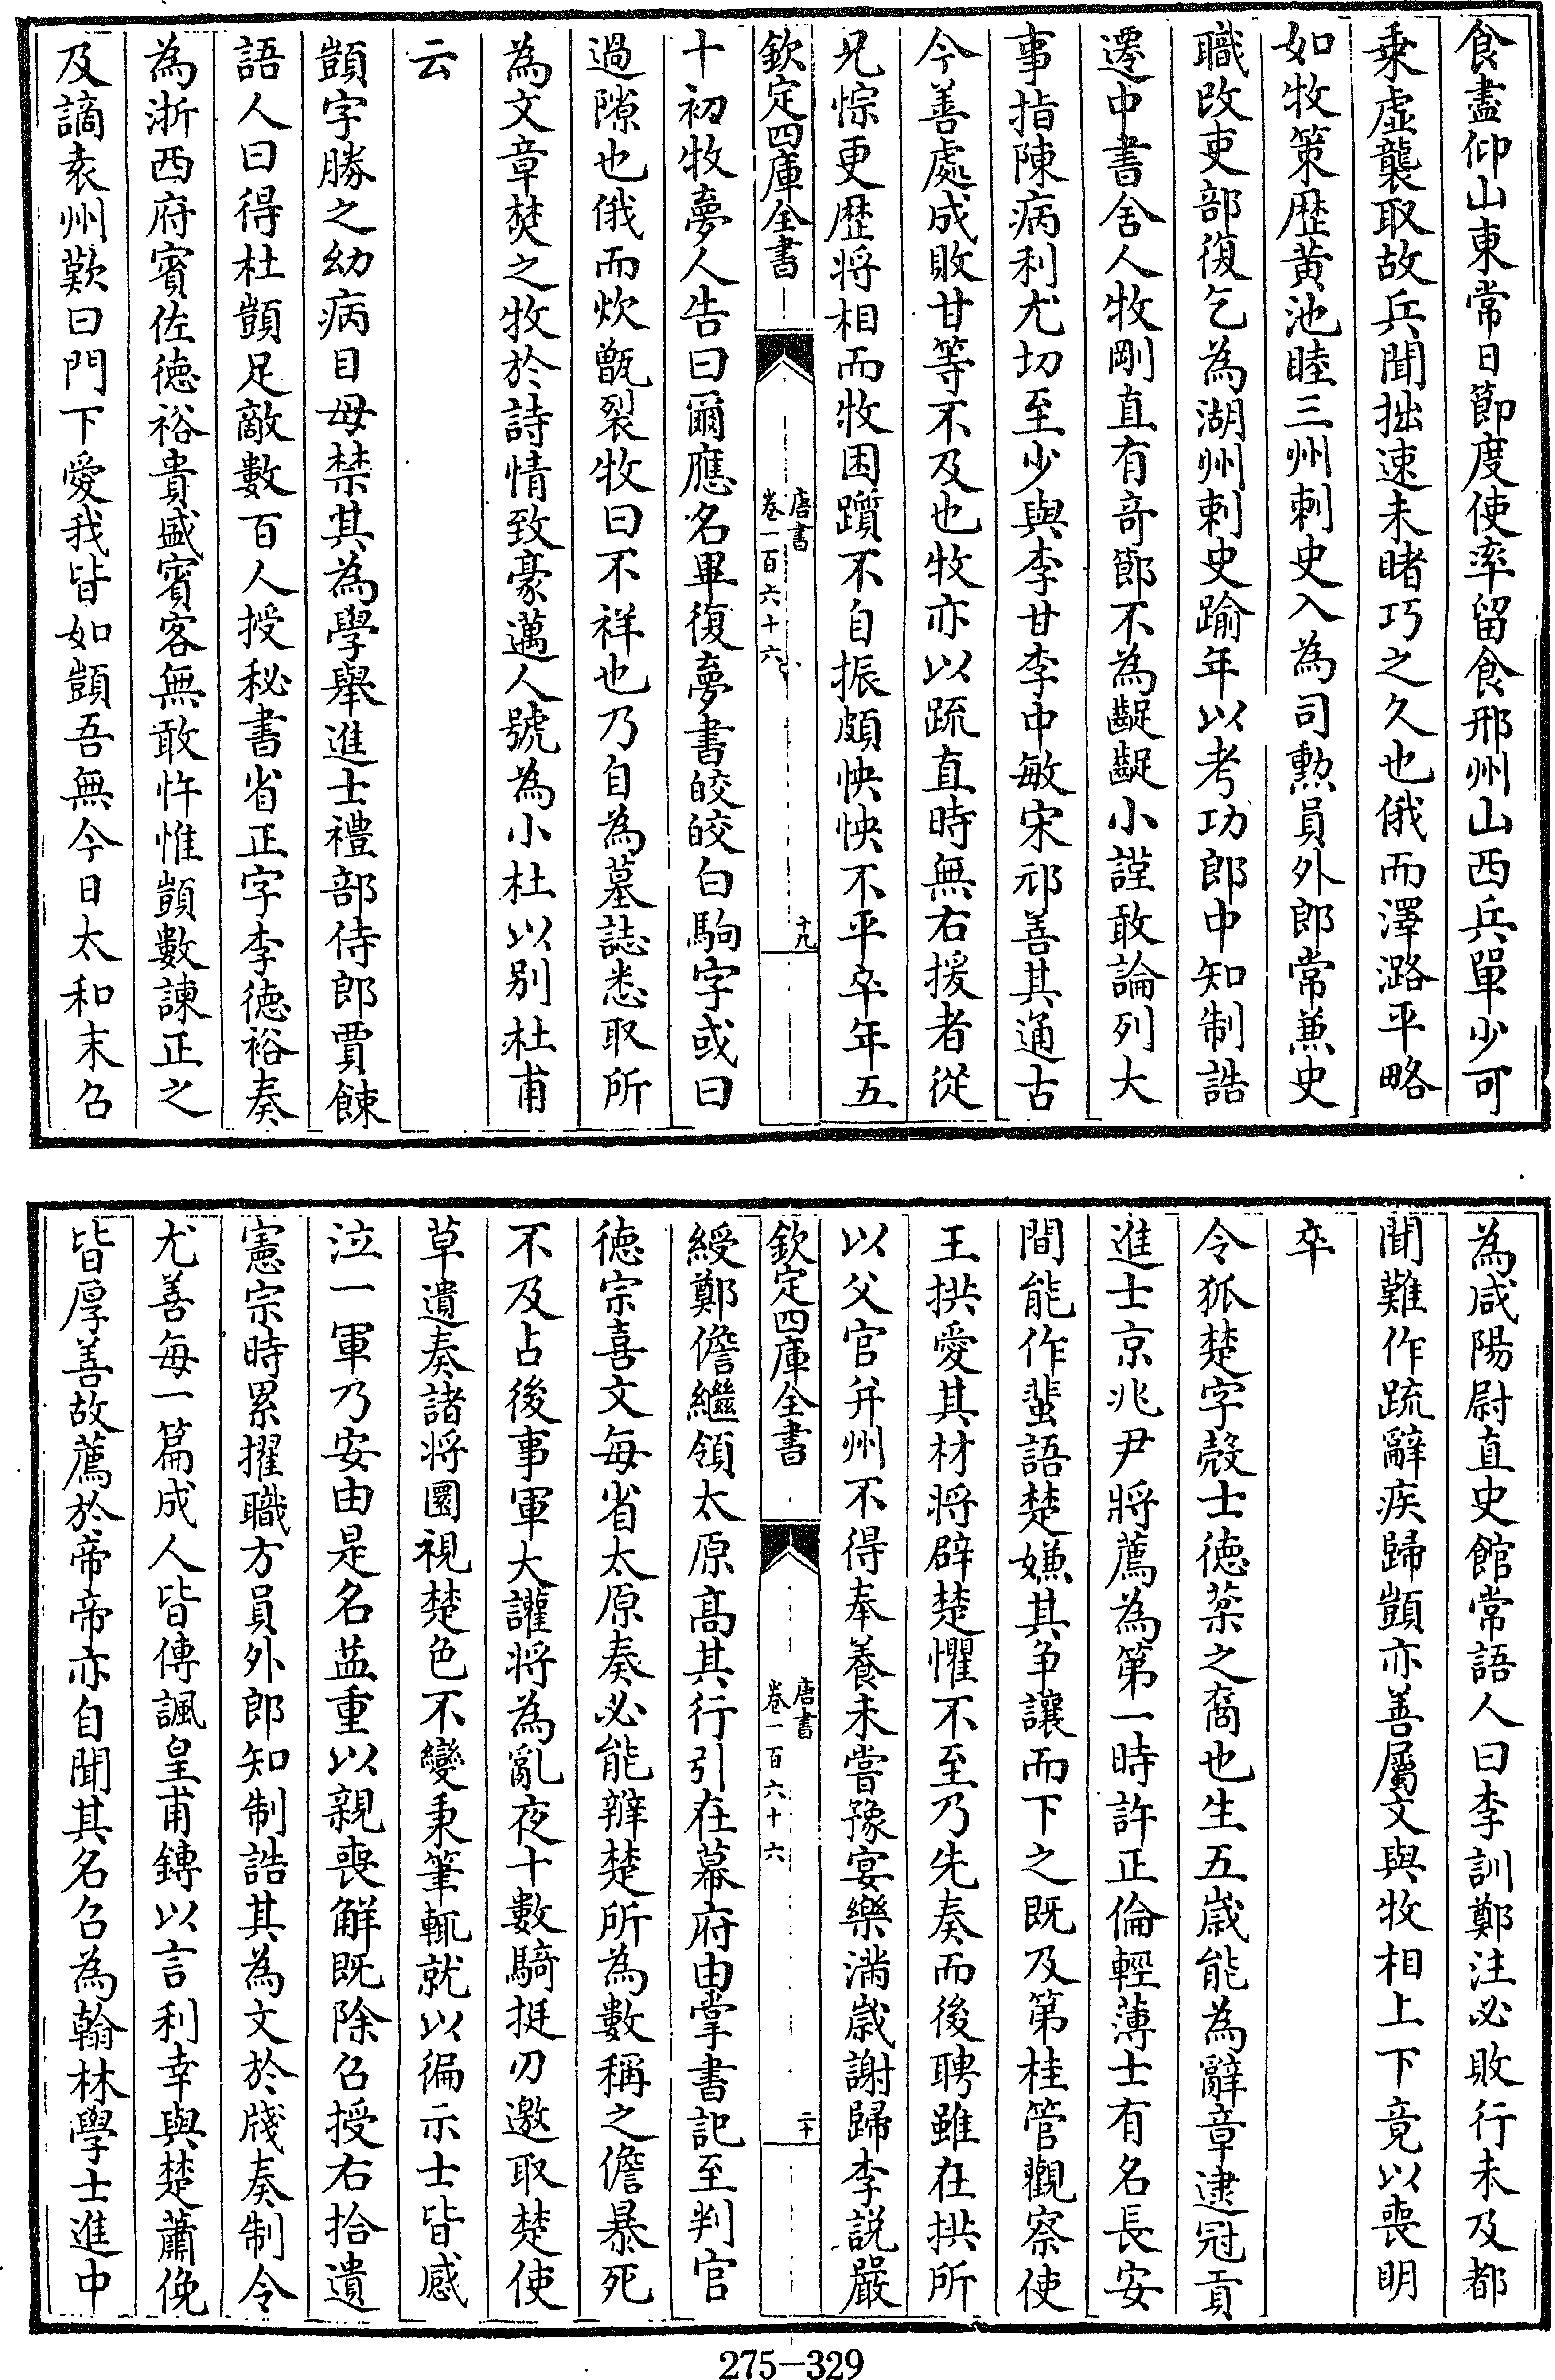 食盡仰山東常日節度使率留食邢州山西兵單少可
乘虛襲取故兵聞拙速未睹巧之久也俄而澤潞平略
如牧策歴黄池睦三州刺史入為司勲員外郎常兼史
職改吏部復乞為湖州刺史踰年以考功郎中知制誥
遷中書舍人牧剛直有竒節不為齪齪小謹敢論列大
事指陳病利尤切至少與李甘李中敏宋祁善其通古
今善處成敗甘等不及也牧亦以疏直時無右援者從
兄悰更歴將相而牧困躓不自振頗怏怏不平卒年五
欽定四庫全書
唐書
卷一百六十六
十九
十初牧夢人告曰爾應名畢復夢書皎皎白駒字或曰
過隙也俄而炊甑裂牧曰不祥也乃自為墓誌悉取所
為文章焚之牧於詩情致豪邁人號為小杜以别杜甫
云
顗字勝之幼病目母禁其為學舉進士禮部侍郎賈餗
語人曰得杜顗足敵數百人授秘書省正字李德裕奏
為浙西府賓佐德裕貴盛賓客無敢忤惟顗數諫正之
及謫袁州歎曰門下愛我皆如顗吾無今日太和末召
為咸陽尉直史館常語人曰李訓鄭注必敗行未及都
聞難作疏辭疾歸顗亦善屬文與牧相上下竟以喪明
卒
令狐楚字殻士德棻之裔也生五歲能為辭章逮冠貢
進士京兆尹將薦為第一時許正倫輕薄士有名長安
間能作蜚語楚嫌其争讓而下之既及第桂管觀察使
王拱愛其材將辟楚懼不至乃先奏而後聘雖在拱所
以父官并州不得奉養未嘗豫宴樂滿歲謝歸李説嚴
欽定四庫全書
唐書
卷一百六十六
二十
綬鄭儋繼領太原高其行引在幕府由掌書記至判官
德宗喜文每省太原奏必能辨楚所為數稱之儋暴死
不及占後事軍大讙將為亂夜十數騎挺刃邀取楚使
草遺奏諸將圜視楚色不變秉筆輒就以徧示士皆感
泣一軍乃安由是名益重以親喪解既除召授右拾遺
憲宗時累擢職方員外郎知制誥其為文於牋奏制令
尤善每一篇成人皆傳諷皇甫鎛以言利幸與楚蕭俛
皆厚善故薦於帝帝亦自聞其名召為翰林學士進中
275-329